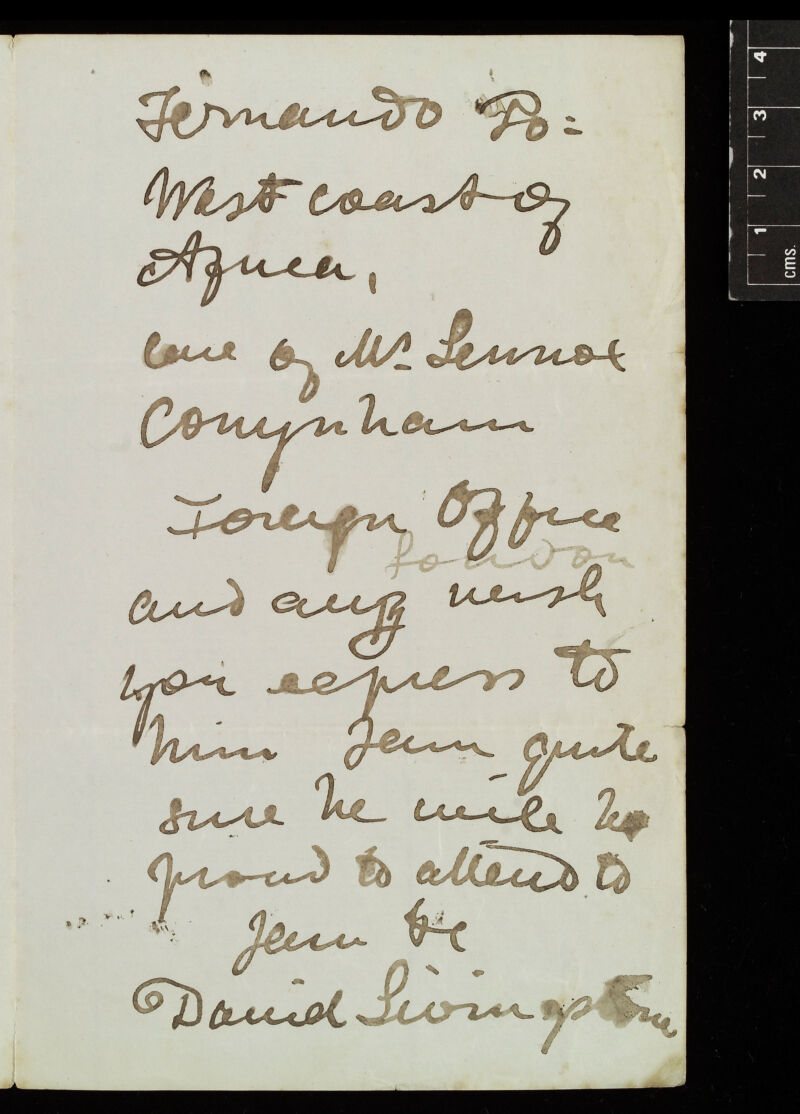 Fernando Po:
West coast of
Africa,
care of Mr. Lennox
Conynham
Foreign Office
London
and any wish
you express to
him I am quite
sure he will be
proud to attend to
I am &c
David Livingstone
4
3
2
1
cms.